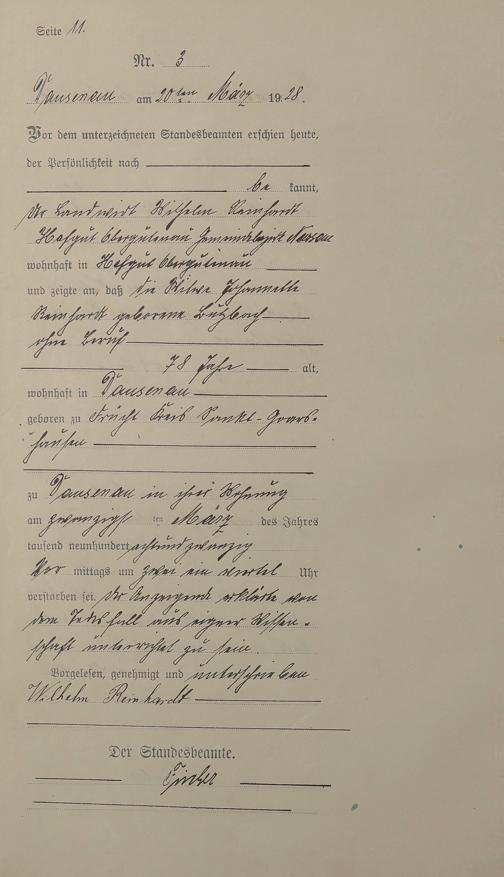 Seite 11.
Nr. 3
Dausenau am 20ten März 1928.
Vor dem unterzeichneten Standesbeamten erschien heute,
der Persönlichkeit nach
be kannt,
der Landwirt Wilhelm Reinhardt
Hofgut Obergutenau Gemeindebezirk Nassau
wohnhaft in Hofgut Obergutenau
und zeigte an, daß die Witwe Johannette
Reinhardt geborene Butzbach
ohne Beruf
78 Jahre alt,
wohnhaft in Dausenau
geboren zu Frücht Kreis Sankt-Goars-
hausen
zu Dausenau in ihrer Wohnung
am zwanzigst ten März des Jahres
tausend neunhundert achtundzwanzig
Vor mittags um zwei ein viertel Uhr
verstorben sei. Der Anzeigende erklärte von
dem Todesfall aus eigner Wissen-
schaft unterrichtet zu sein.
Vorgelesen, genehmigt und unterschrieben
Wilhelm Reinhardt
Der Standesbeamte.